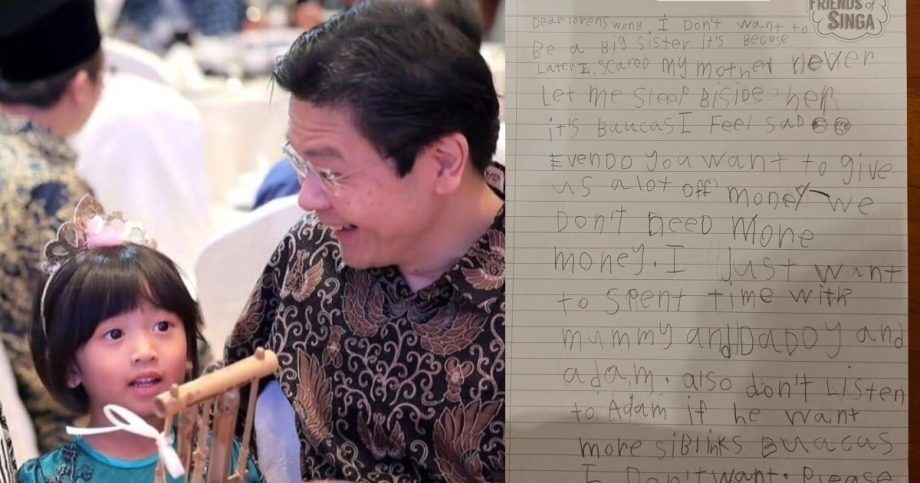 FRIENDS of
SINGA
Dear lorens wong. I Don't want to
Be a Big sister it's Becose
Later I, scared my mother never
Let me Sleep Biside her
it's Baucas I Feel sad
Evendo you want to give
us a lot off money we
Don't need more
money. I Just want
to spent time with
mummy and DaDDy and
adam. also don't Listen
to Adam if he want
more siblinks Buacas
I Don't want. Please